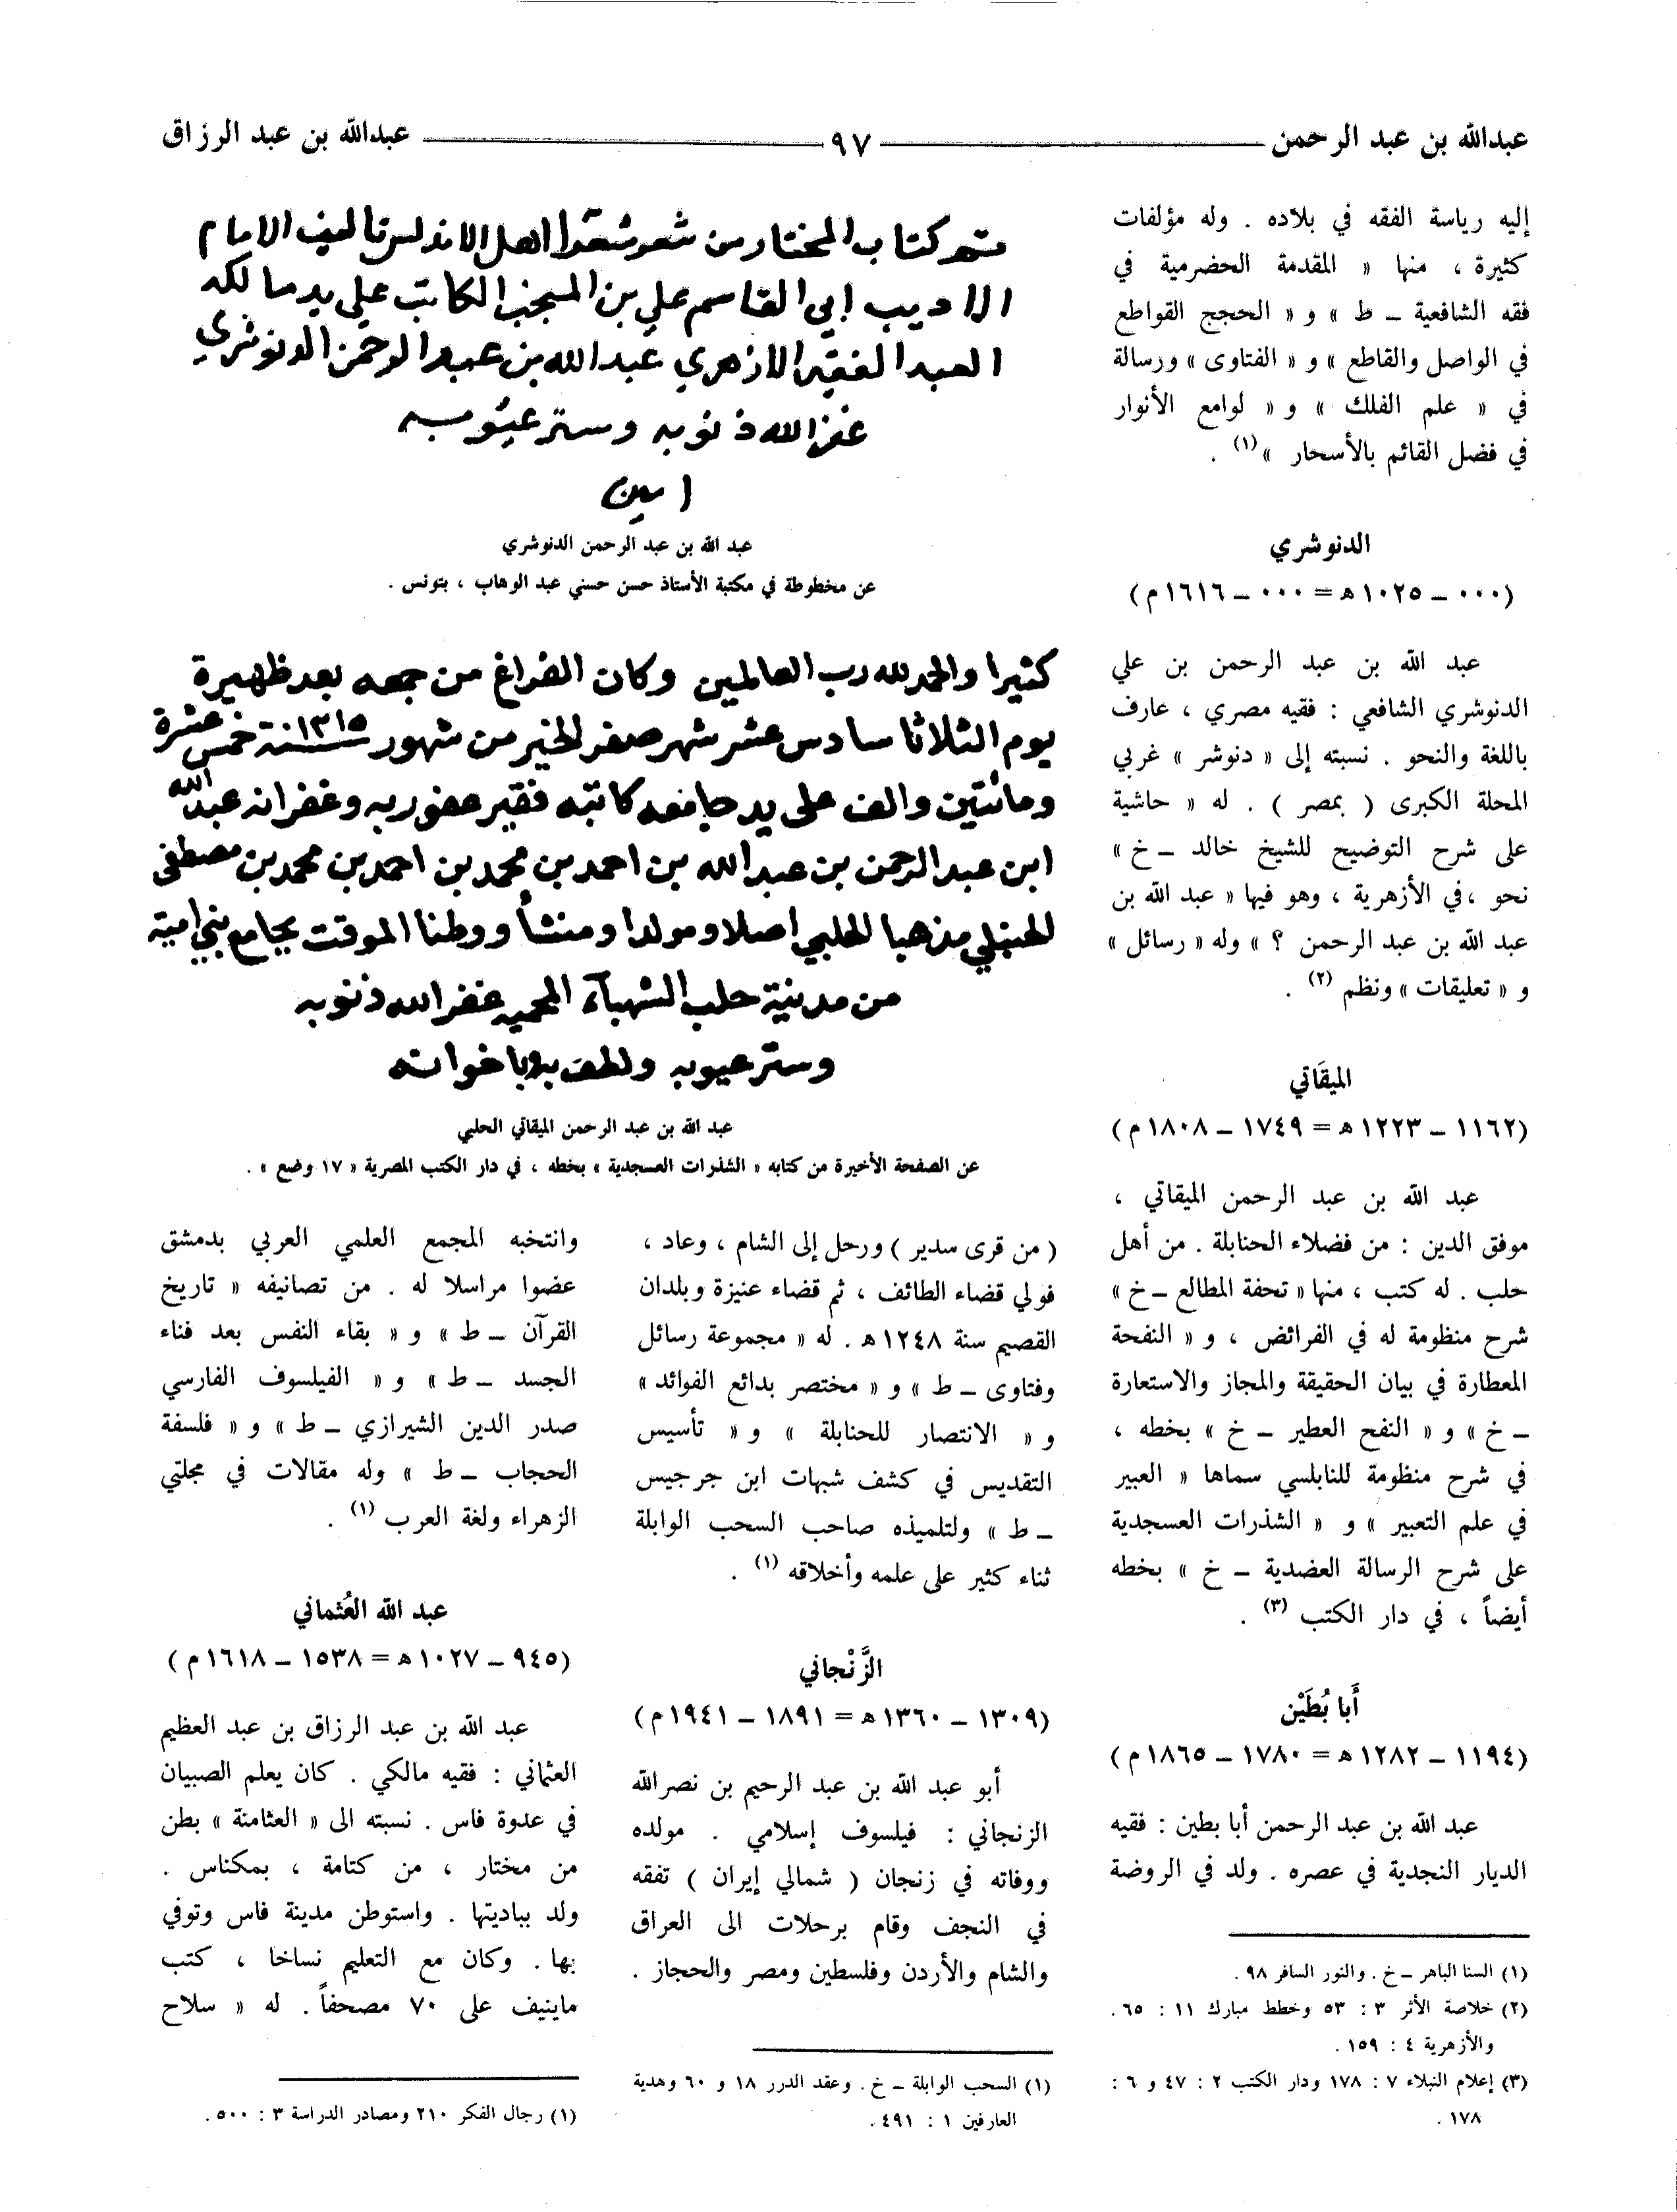 عبدالله بن عبد الرحمن ٩٧ عبدالله بن عبد الرزاق
إليه رياسة الفقه في بلاده . وله مؤلفات
كثيرة ، منها « المقدمة الحضرمية في
فقه الشافعية – ط » و « الحجج القواطع
في الواصل والقاطع » و « الفتاوى » ورسالة
في « علم الفلك » و « لوامع الأنوار
في فضل القائم بالأسحار » (١) .
الدنوشري
(٠٠٠ – ١٠٢٥ هـ = ٠٠٠ – ١٦١٦ م)
عبد الله بن عبد الرحمن بن علي
الدنوشري الشافعي : فقيه مصري ، عارف
باللغة والنحو . نسبته إلى « دنوشر » غربي
المحلة الكبرى ( بمصر ) . له « حاشية
على شرح التوضيح للشيخ خالد – خ »
نحو ، في الأزهرية ، وهو فيها « عبد الله بن
عبد الله بن عبد الرحمن ؟ » وله « رسائل »
و « تعليقات » ونظم (٢) .
الميقَاتي
(١١٦٢ – ١٢٢٣ هـ = ١٧٤٩ – ١٨٠٨ م)
عبد الله بن عبد الرحمن الميقاتي ،
موفق الدين : من فضلاء الحنابلة . من أهل
حلب . له كتب ، منها « تحفة المطالع – خ »
شرح منظومة له في الفرائض ، و « النفحة
المعطارة في بيان الحقيقة والمجاز والاستعارة
– خ » و « النفح العطير – خ » بخطه ،
في شرح منظومة للنابلسي سماها « العبير
في علم التعبير » و « الشذرات العسجدية
على شرح الرسالة العضدية – خ » بخطه
أيضاً ، في دار الكتب (٣) .
أَبا بُطَيْن
(١١٩٤ – ١٢٨٢ هـ = ١٧٨٠ – ١٨٦٥ م)
عبد الله بن عبد الرحمن أبا بطين : فقيه
الديار النجدية في عصره . ولد في الروضة
(١) السنا الباهر – خ . والنور السافر ٩٨ .
(٢) خلاصة الأثر ٣ : ٥٣ وخطط مبارك ١١ : ٦٥ .
والأزهرية ٤ : ١٥٩ .
(٣) إعلام النبلاء ٧ : ١٧٨ ودار الكتب ٢ : ٤٧ و ٦ :
١٧٨ .
تم كتاب المختار من شعر شعرا اهل الاندلس تاليف الامام
الاديب ابي القاسم علي بن المنجب الكاتب علي يد مالكه
العبد الفقير الازهري عبد الله بن عبد الرحمن الدنوشري
غفر الله ذنوبه وستر عيوبه
امين
عبد الله بن عبد الرحمن الدنوشري
عن مخطوطة في مكتبة الأستاذ حسن حسني عبد الوهاب ، بتونس .
كثيرا والحمد لله رب العالمين وكان الفراغ من جمعه بعد ظهيرة
يوم الثلاثا سادس عشر شهر صفر الخير من شهور سنة خمس عشرة
ومائتين والف على يد جامعه كاتبه فقير عفو ربه وغفرانه عبد الله
ابن عبد الرحمن بن عبد الله بن احمد بن محمد بن احمد بن محمد بن مصطفى
الحنبلي مذهبا الحلبي اصلا ومولدا ومنشأ ووطنا الموقت بجامع بني امية
من مدينة حلب الشهبآء المحميه غفر الله ذنوبه
وستر عيوبه ولطف به وباخوانه
عبد الله بن عبد الرحمن الميقاتي الحلبي
عن الصفحة الأخيرة من كتابه « الشذرات العسجدية » بخطه ، في دار الكتب المصرية « ١٧ وضع » .
( من قرى سدير ) ورحل إلى الشام ، وعاد ،
فولي قضاء الطائف ، ثم قضاء عنيزة وبلدان
القصيم سنة ١٢٤٨ هـ . له « مجموعة رسائل
وفتاوى – ط » و « مختصر بدائع الفوائد »
و « الانتصار للحنابلة » و « تأسيس
التقديس في كشف شبهات ابن جرجيس
– ط » ولتلميذه صاحب السحب الوابلة
ثناء كثير على علمه وأخلاقه (١) .
الزَّنْجاني
(١٣٠٩ – ١٣٦٠ هـ = ١٨٩١ – ١٩٤١ م)
أبو عبد الله بن عبد الرحيم بن نصرالله
الزنجاني : فيلسوف إسلامي . مولده
ووفاته في زنجان ( شمالي إيران ) تفقه
في النجف وقام برحلات الى العراق
والشام والأردن وفلسطين ومصر والحجاز .
(١) السحب الوابلة – خ . وعقد الدرر ١٨ و ٦٠ وهدية
العارفين ١ : ٤٩١ .
وانتخبه المجمع العلمي العربي بدمشق
عضوا مراسلا له . من تصانيفه « تاريخ
القرآن – ط » و « بقاء النفس بعد فناء
الجسد – ط » و « الفيلسوف الفارسي
صدر الدين الشيرازي – ط » و « فلسفة
الحجاب – ط » وله مقالات في مجلتي
الزهراء ولغة العرب (١) .
عبد الله العُثماني
(٩٤٥ – ١٠٢٧ هـ = ١٥٣٨ – ١٦١٨ م)
عبد الله بن عبد الرزاق بن عبد العظيم
العثماني : فقيه مالكي . كان يعلم الصبيان
في عدوة فاس . نسبته الى « العثامنة » بطن
من مختار ، من كتامة ، بمكناس .
ولد بباديتها . واستوطن مدينة فاس وتوفي
بها . وكان مع التعليم نساخا ، كتب
ماينيف على ٧٠ مصحفاً . له « سلاح
(١) رجال الفكر ٢١٠ ومصادر الدراسة ٣ : ٥٠٠ .